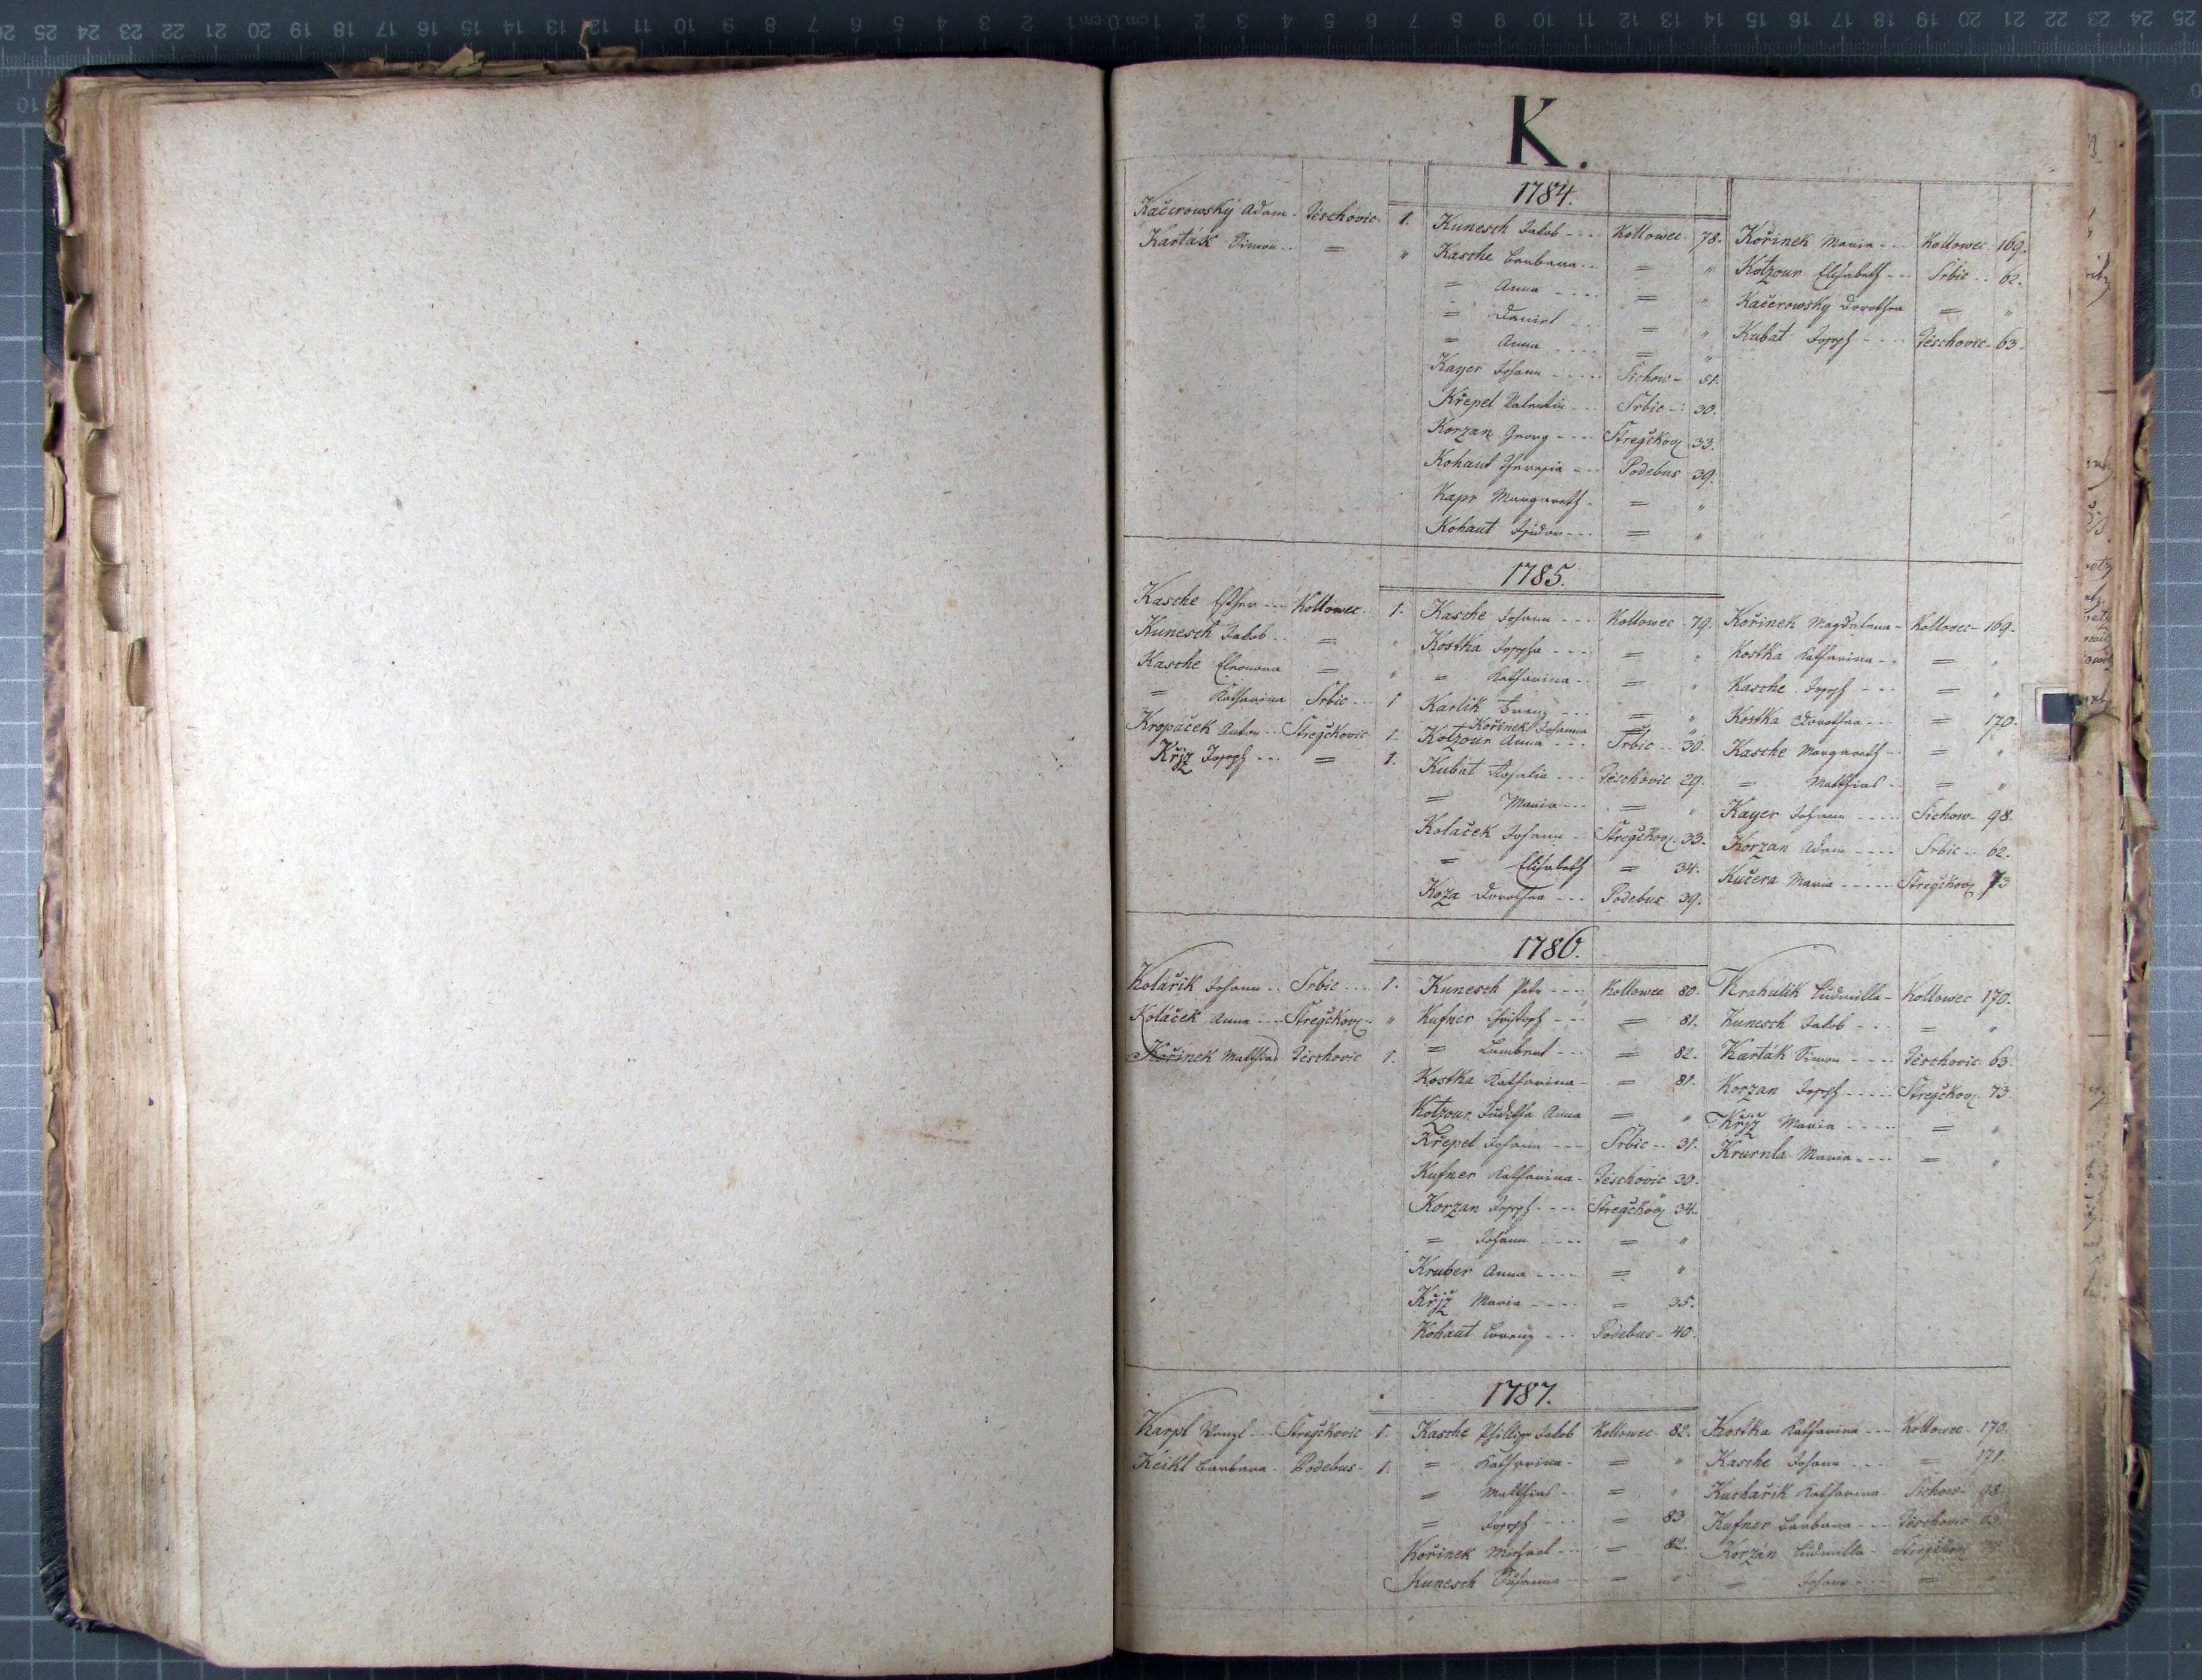 K.
1784.
Kačerowský Adam - Těschovic 1.
Karták Simon .. = "
Kunesch Jakob - - - Kollowec 78.
Kasche Barbara - - = "
= Anna - - - - = "
= Daniel - - - = "
= Anna - - - - = "
Kayer Johann - - - - Sichow - 51.
Křepel Valentin - - - Srbic - 30.
Korzan Georg - - - - Stregčkov 33.
Kohaut Theresia - - - Podebus 39.
Kapr Margareth - = "
Kohaut Isidor - - - = "
Kořinek Maria - - - Kollowec 169.
Kotzour Elisabeth - - - Srbic - - 62.
Kačerowsky Dorothea = "
Kubat Joseph - - - - Těschovic - 63.
1785.
Kasche Esther - - - Kollowec 1.
Kunesch Jakob . . = "
Kasche Eleonora = "
= Katharina Srbic - - - 1
Kropáček Anton - - Stregčkovic 1.
Křjž Joseph - - - = 1.
Kasche Johann - - - Kollowec 79.
Kostka Josepha - - - = "
= Katharina - - = "
Karlik Franz - - - = "
Kořinek Johanna = "
Kotzour Anna - - - Srbic - - 30.
Kubat Rosalia - - - Těschovic 29.
= Maria - - - = "
Kolaček Johann - Stregčkov. 33.
= Elisabeth = 34.
Koza Dorothea - - - Podebus 39.
Kořinek Magdalena - Kollowec - 169.
Kostka Katharina - - = "
Kasche Joseph - - - = "
Kostka Dorothea - - - = 170.
Kasche Margareth - - = "
= Matthias - - = "
Kayer Johann - - - - - Sichow - 98.
Korzan Adam - - - - Srbic - - 62.
Kučera Maria - - - - - Stregčkov 73
1786.
Kolářik Johann . . Srbic - - - 1.
Koláček Anna - - - Stregčkov - "
Kořinek Matthias Těschovic 1.
Kunesch Peter - - - Kollowec 80.
Kufner Christoph - - - = 81.
= Lambert - - - = 82.
Kostka Katharina - = 81.
Kotzour Juditha Anna = "
Křepel Johann - - - Srbic - - 31.
Kufner Katharina - Těschovic 30.
Korzan Joseph - - - - Stregčkov 34.
= Johann - - - - = "
Kruber Anna - - - - = "
Křjž Maria - - - - = 35.
Kohaut Lorenz - - - Podebus - 40.
Krakulik Ludmilla - Kollowec 170.
Kunesch Jakob - - - = "
Karták Simon - - - - Těschovic 63.
Korzan Joseph - - - - - Stregčkov 73.
Křjž Maria - - - - - = "
Maria - - - - = "
1787.
Karpl Wenzl - - - Stregčkovic 1.
Keikl Barbara - Podebus - 1.
Kasche Phillipp Jakob Kollowec 82.
= Katharina - = "
= Matthias - - = "
= Joseph - - - = 83
Kořinek Michael - - - = 82.
Kunesch Susanna - - = "
Kostka Katharina - - - Kollowec - 170.
Kasche Johann - - - = 171.
Kuchařik Katharina - Sichow - 98
Kufner Barbara - - Těschovic 63.
Korzán Ludmilla - Stregčkov
= Johann - - =